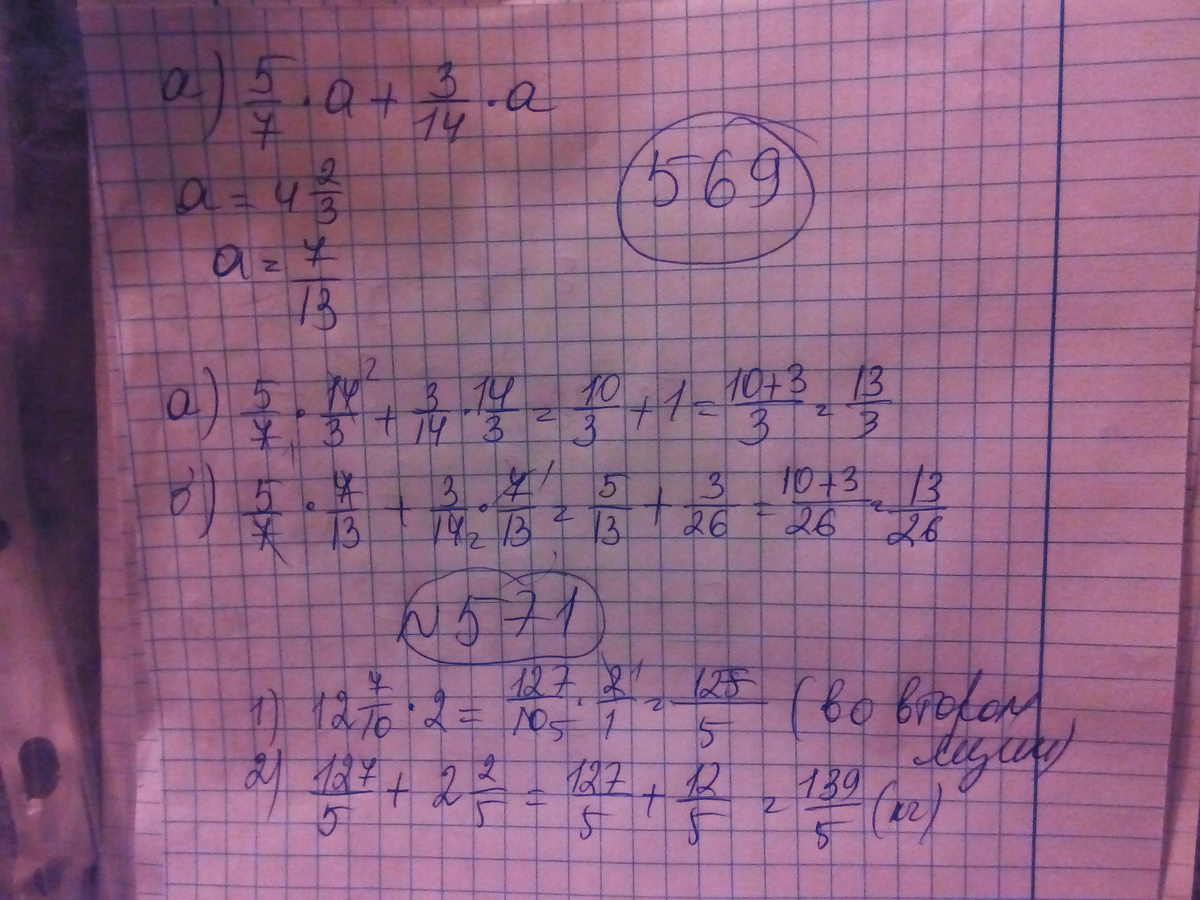 а) 5/7 · a + 3/14 · a
569
a = 4 2/3
a = 7/13
а) 5/7 · 14/3 + 3/14 · 14/3 = 10/3 + 1 = 10+3/3 = 13/3
б) 5/7 · 7/13 + 3/14 · 7/13 = 5/13 + 3/26 = 10+3/26 = 13/26
N 571
1) 12 7/10 · 2 = 127/10 · 2/1 = 125/5 (во втором
2) 127/5 + 2 2/5 = 127/5 + 12/5 = 139/5 (кг)